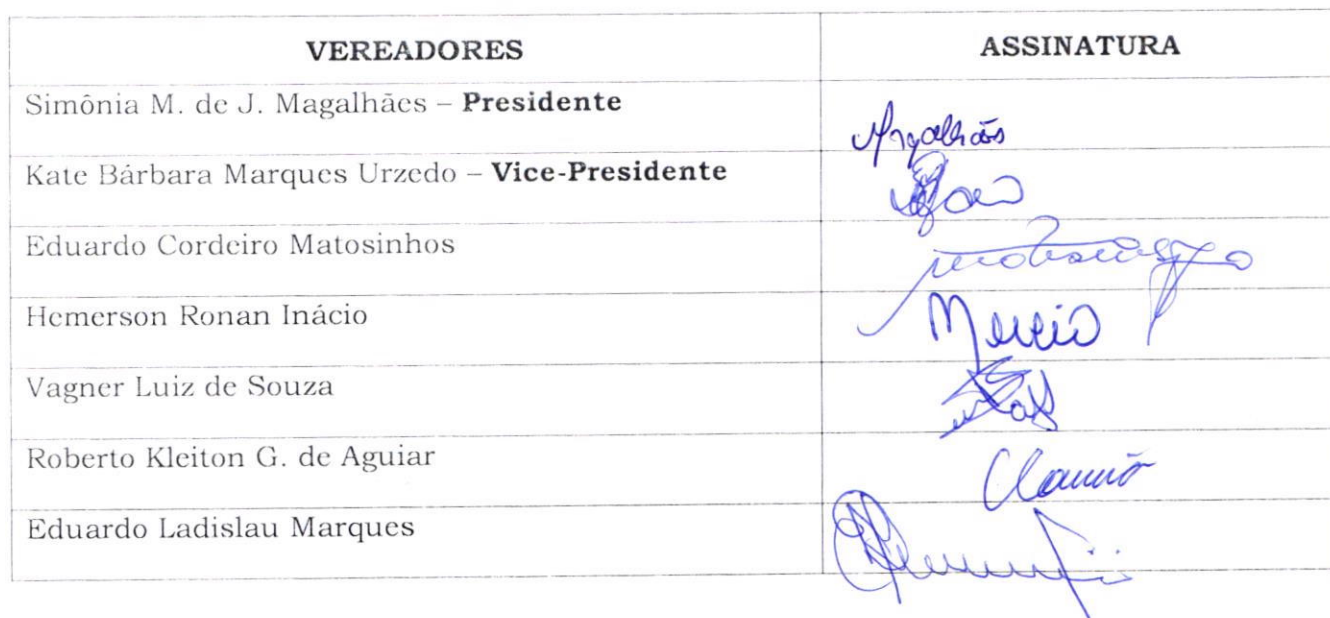 VEREADORES ASSINATURA
Simônia M. de J. Magalhães – Presidente
Magalhães
Kate Bárbara Marques Urzedo – Vice-Presidente
Eduardo Cordeiro Matosinhos
Hemerson Ronan Inácio
Vagner Luiz de Souza
Roberto Kleiton G. de Aguiar
Eduardo Ladislau Marques